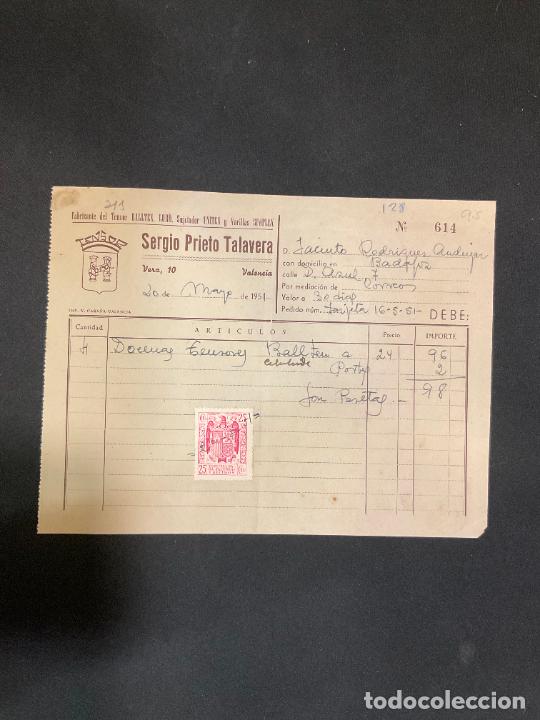 211
128
95
Fabricante del Tensor BALLTEN, LUHÓ, Sujetador UNITEX y Varillas SIMPLEX
Nº 614
TENSOR
Sergio Prieto Talavera
Vera, 10 Valencia
20 de Mayo de 1951
D. Jacinto Rodriguez Andujar
con domicilio en Badajoz
calle D. 7
Por mediación de Correos
Valor a 30 d/f
Pedido núm. Tarjeta 16-5-51- DEBE:
VALENCIA
Cantidad ARTICULOS Precio IMPORTE
4 Docenas tensores Ballten a 24 96
Portes 2
Son Pesetas.— 98
25 25
25
todocoleccion
todocoleccion.net